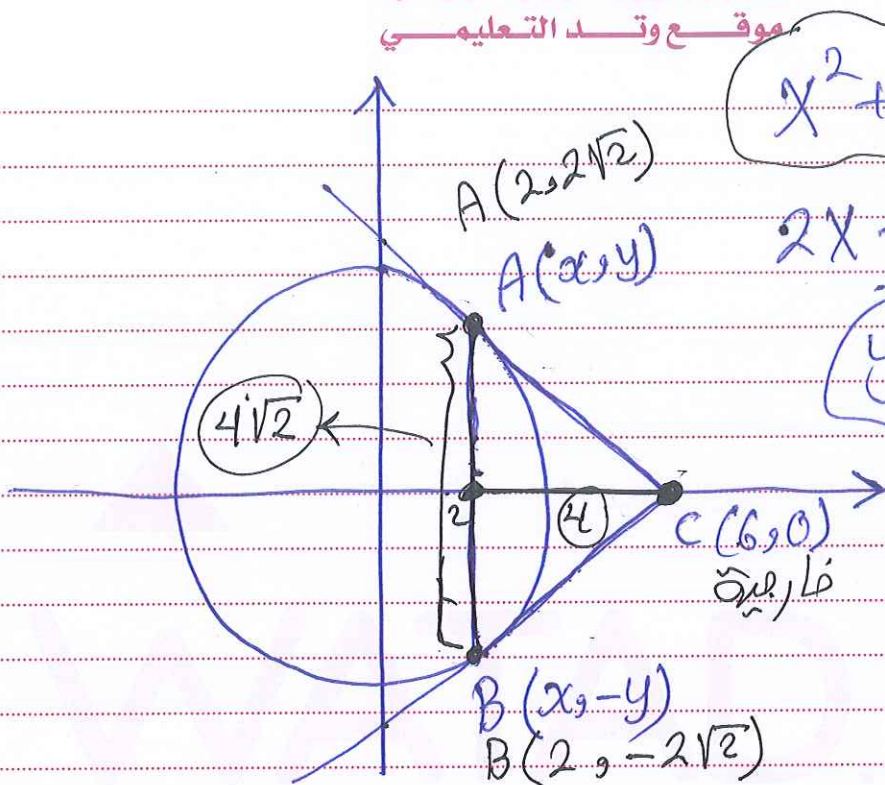 موقع وتد التعليمي
x² +
A(2, 2√2)
2x
A(x, y)
4√2
2
4
C(6, 0)
خارجية
B(x, -y)
B(2, -2√2)